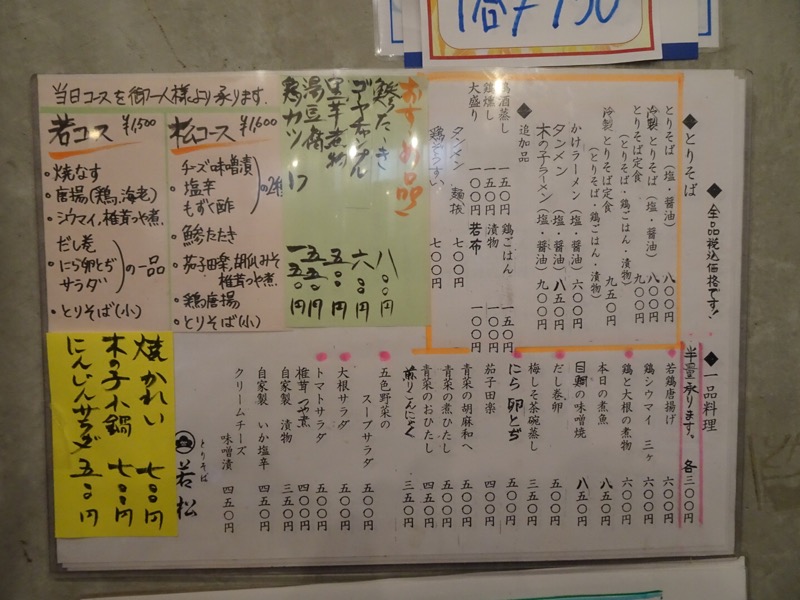 1合¥750
◆全品税込価格です!
◆とりそば
とりそば(塩・醤油) 八〇〇円
冷製とりそば(塩・醤油) 八〇〇円
とりそば定食
(とりそば・鶏ごはん・漬物) 九五〇円
冷製とりそば定食
(とりそば・鶏ごはん・漬物) 九五〇円
かけラーメン(塩・醤油) 六〇〇円
タンメン(塩・醤油) 八五〇円
木の子ラーメン(塩・醤油) 九〇〇円
◆追加品
鶏酒蒸し 一五〇円 鶏ごはん 一五〇円
鶏燻し 一五〇円 漬物 一〇〇円
大盛り 一〇〇円 若布 一〇〇円
タンメン麺抜 七〇〇円
鶏ぞうすい 七〇〇円
おすすめ品
鯵たたき 八〇〇円
ゴーヤチャンプル 六〇〇円
里芋煮物 五〇〇円
湯豆腐 五五〇円
鶏カツ
当日コースを御一人様より承ります.
松コース ¥1,600
チーズ味噌漬
・塩辛
もずく酢
・鯵たたき
・茄子田楽,胡瓜みそ
椎茸つや煮.
・鶏唐揚
・とりそば(小)
若コース ¥1,500
・焼なす
・唐揚(鶏,海老)
・シウマイ,椎茸つや煮.
だし巻
・にら卵とぢ
サラダ
の一品
・とりそば(小)
◆一品料理
半量承ります。 各三〇〇円
若鶏唐揚げ 六〇〇円
鶏シウマイ 三ヶ 六〇〇円
鶏と大根の煮物 六〇〇円
本日の煮魚 八五〇円
目鯛の味噌焼 八五〇円
だし巻卵 五五〇円
梅しそ茶碗蒸し 三五〇円
にら卵とぢ 五〇〇円
茄子田楽 四〇〇円
青菜の胡麻和へ 五〇〇円
青菜の煮びたし 五〇〇円
青菜のおひたし 四五〇円
煎りこんにゃく 三五〇円
五色野菜の
スープサラダ 五〇〇円
大根サラダ 五〇〇円
トマトサラダ 五〇〇円
椎茸つや煮 四〇〇円
自家製 漬物 三五〇円
自家製 いか塩辛 四五〇円
クリームチーズ
味噌漬 四五〇円
とりそば
若松
焼かれい 七〇〇円
木の子小鍋 七〇〇円
にんじんサラダ 五〇〇円